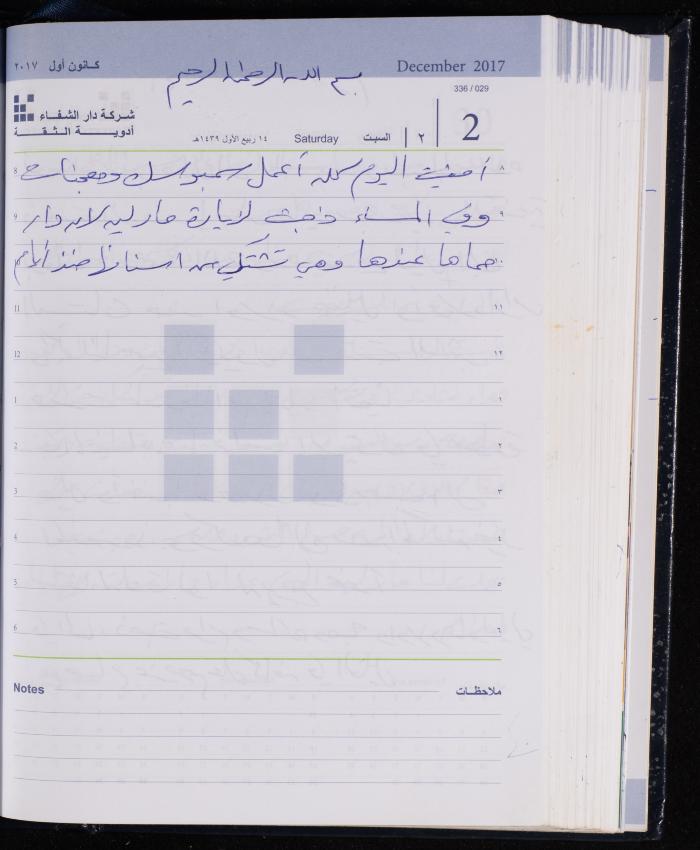 كانون أول ٢٠١٧ December 2017
بسم الله الرحمن الرحيم
336 / 029
شركة دار الشفاء
أدويــة الـثـقـة
١٤ ربيع الأول ١٤٣٩هـ Saturday السبت ٢ 2
8 أمضيت اليوم كله أعمل سمبوسك ومعجنات ٨
9 وفي المساء ذهبت لزيارة مارلين لان دار ٩
حماها عندها وهي تشتكي من اسنانها منذ أيام
11 ١١
12 ١٢
1 ١
2 ٢
3 ٣
4 ٤
5 ٥
6 ٦
Notes ملاحظات